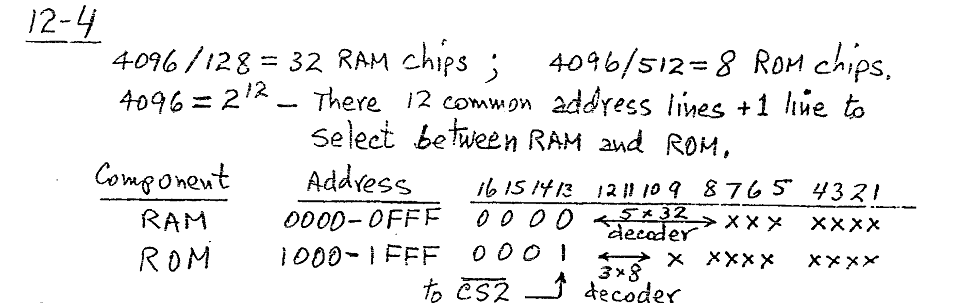 12-4
4096/128 = 32 RAM chips ; 4096/512 = 8 ROM chips.
4096 = 2^12 – There 12 common address lines + 1 line to
select between RAM and ROM.
Component Address 16 15 14 13 12 11 10 9 8 7 6 5 4 3 2 1
RAM 0000-0FFF 0 0 0 0 5×32 decoder x x x x x x x
ROM 1000-1FFF 0 0 0 1 3×8 decoder x x x x x x x x x
to C̅S̅2̅